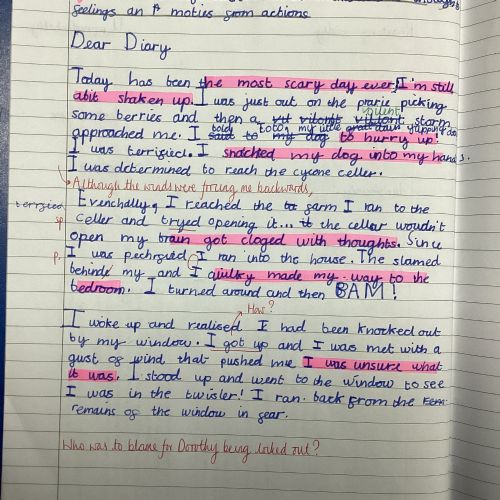 feelings an motius from actions
Dear Diary
Today has been the most scary day ever! I'm still
abit shaken up. I was just out on the prarie picking
violent
some berries and then a storm
told toto, my little yapping dog
approached me. I to hurry up!
I was terrisied. I snached my dog into my hands.
I was determined to reach the cycone celler.
Although the winds were forcing me backwards,
terrified Evenchally, I reached the farm I ran to the
sp celler and tryed opening it... the cellar wouldn't
open my brain got cloged with thoughts. Since
p. I was pechrified I ran into the house. The slamed
behinde my and I quilky made my way to the
bedroom. I turned around and then BAM!
How?
I woke up and realised I had been knocked out
by my window. I got up and I was met with a
gust of wind that pushed me I was unsure what
it was. I stood up and went to the window to see
I was in the twister! I ran back from the
remains of the window in fear.
Who was to blame for Dorothy being locked out?